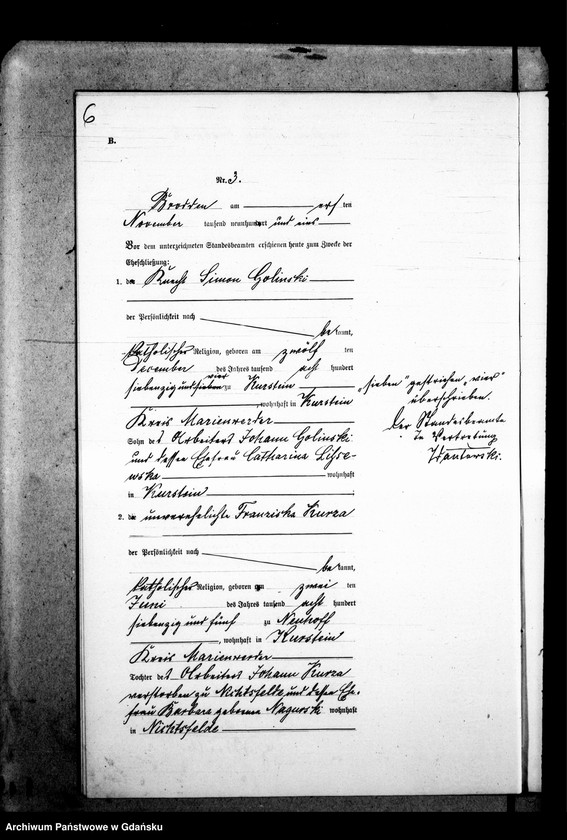 6
B.
Nr. 3.
Brodden am elften
November tausend neunhundert und eins
Vor dem unterzeichneten Standesbeamten erschienen heute zum Zwecke der
Eheschließung:
1. der Knecht Simon Golinski
der Persönlichkeit nach
bekannt,
katholischer Religion, geboren am zwölften
December des Jahres tausend acht hundert
vier
siebenzig und sieben zu Kurstein
, wohnhaft in Kurstein
Kreis Marienwerder
Sohn des Arbeiters Johann Golinski
und dessen Ehefrau Catharina
wohnhaft
in Kurstein
2. die unverehelichte Franziska Kurza
der Persönlichkeit nach
bekannt,
katholischer Religion, geboren am zweiten
Juni des Jahres tausend acht hundert
siebenzig und fünf zu Neuhoff
, wohnhaft in Kurstein
Kreis Marienwerder
Tochter des Arbeiters Johann Kurza
verstorben zu Nichtsfelde und dessen Ehe-
frau Barbara geborene Nagurski wohnhaft
in Nichtsfelde
„sieben" gestrichen „vier"
überschrieben.
Der Standesbeamte
In Vertretung
Archiwum Państwowe w Gdańsku